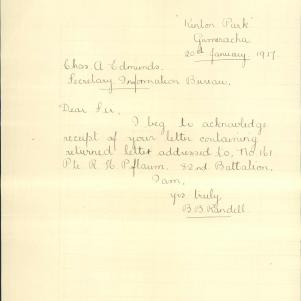 "Kenton Park"
Gumeracha
20th January 1917.
Chas. A Edmunds.
Secretary Information Bureau.
Dear Sir,
I beg to acknowledge
receipt of your letter containing
returned letter addressed to, No 161
Pte R. H. Pflaum. 32nd Battalion.
I am,
yrs truly,
B. B. Randell.